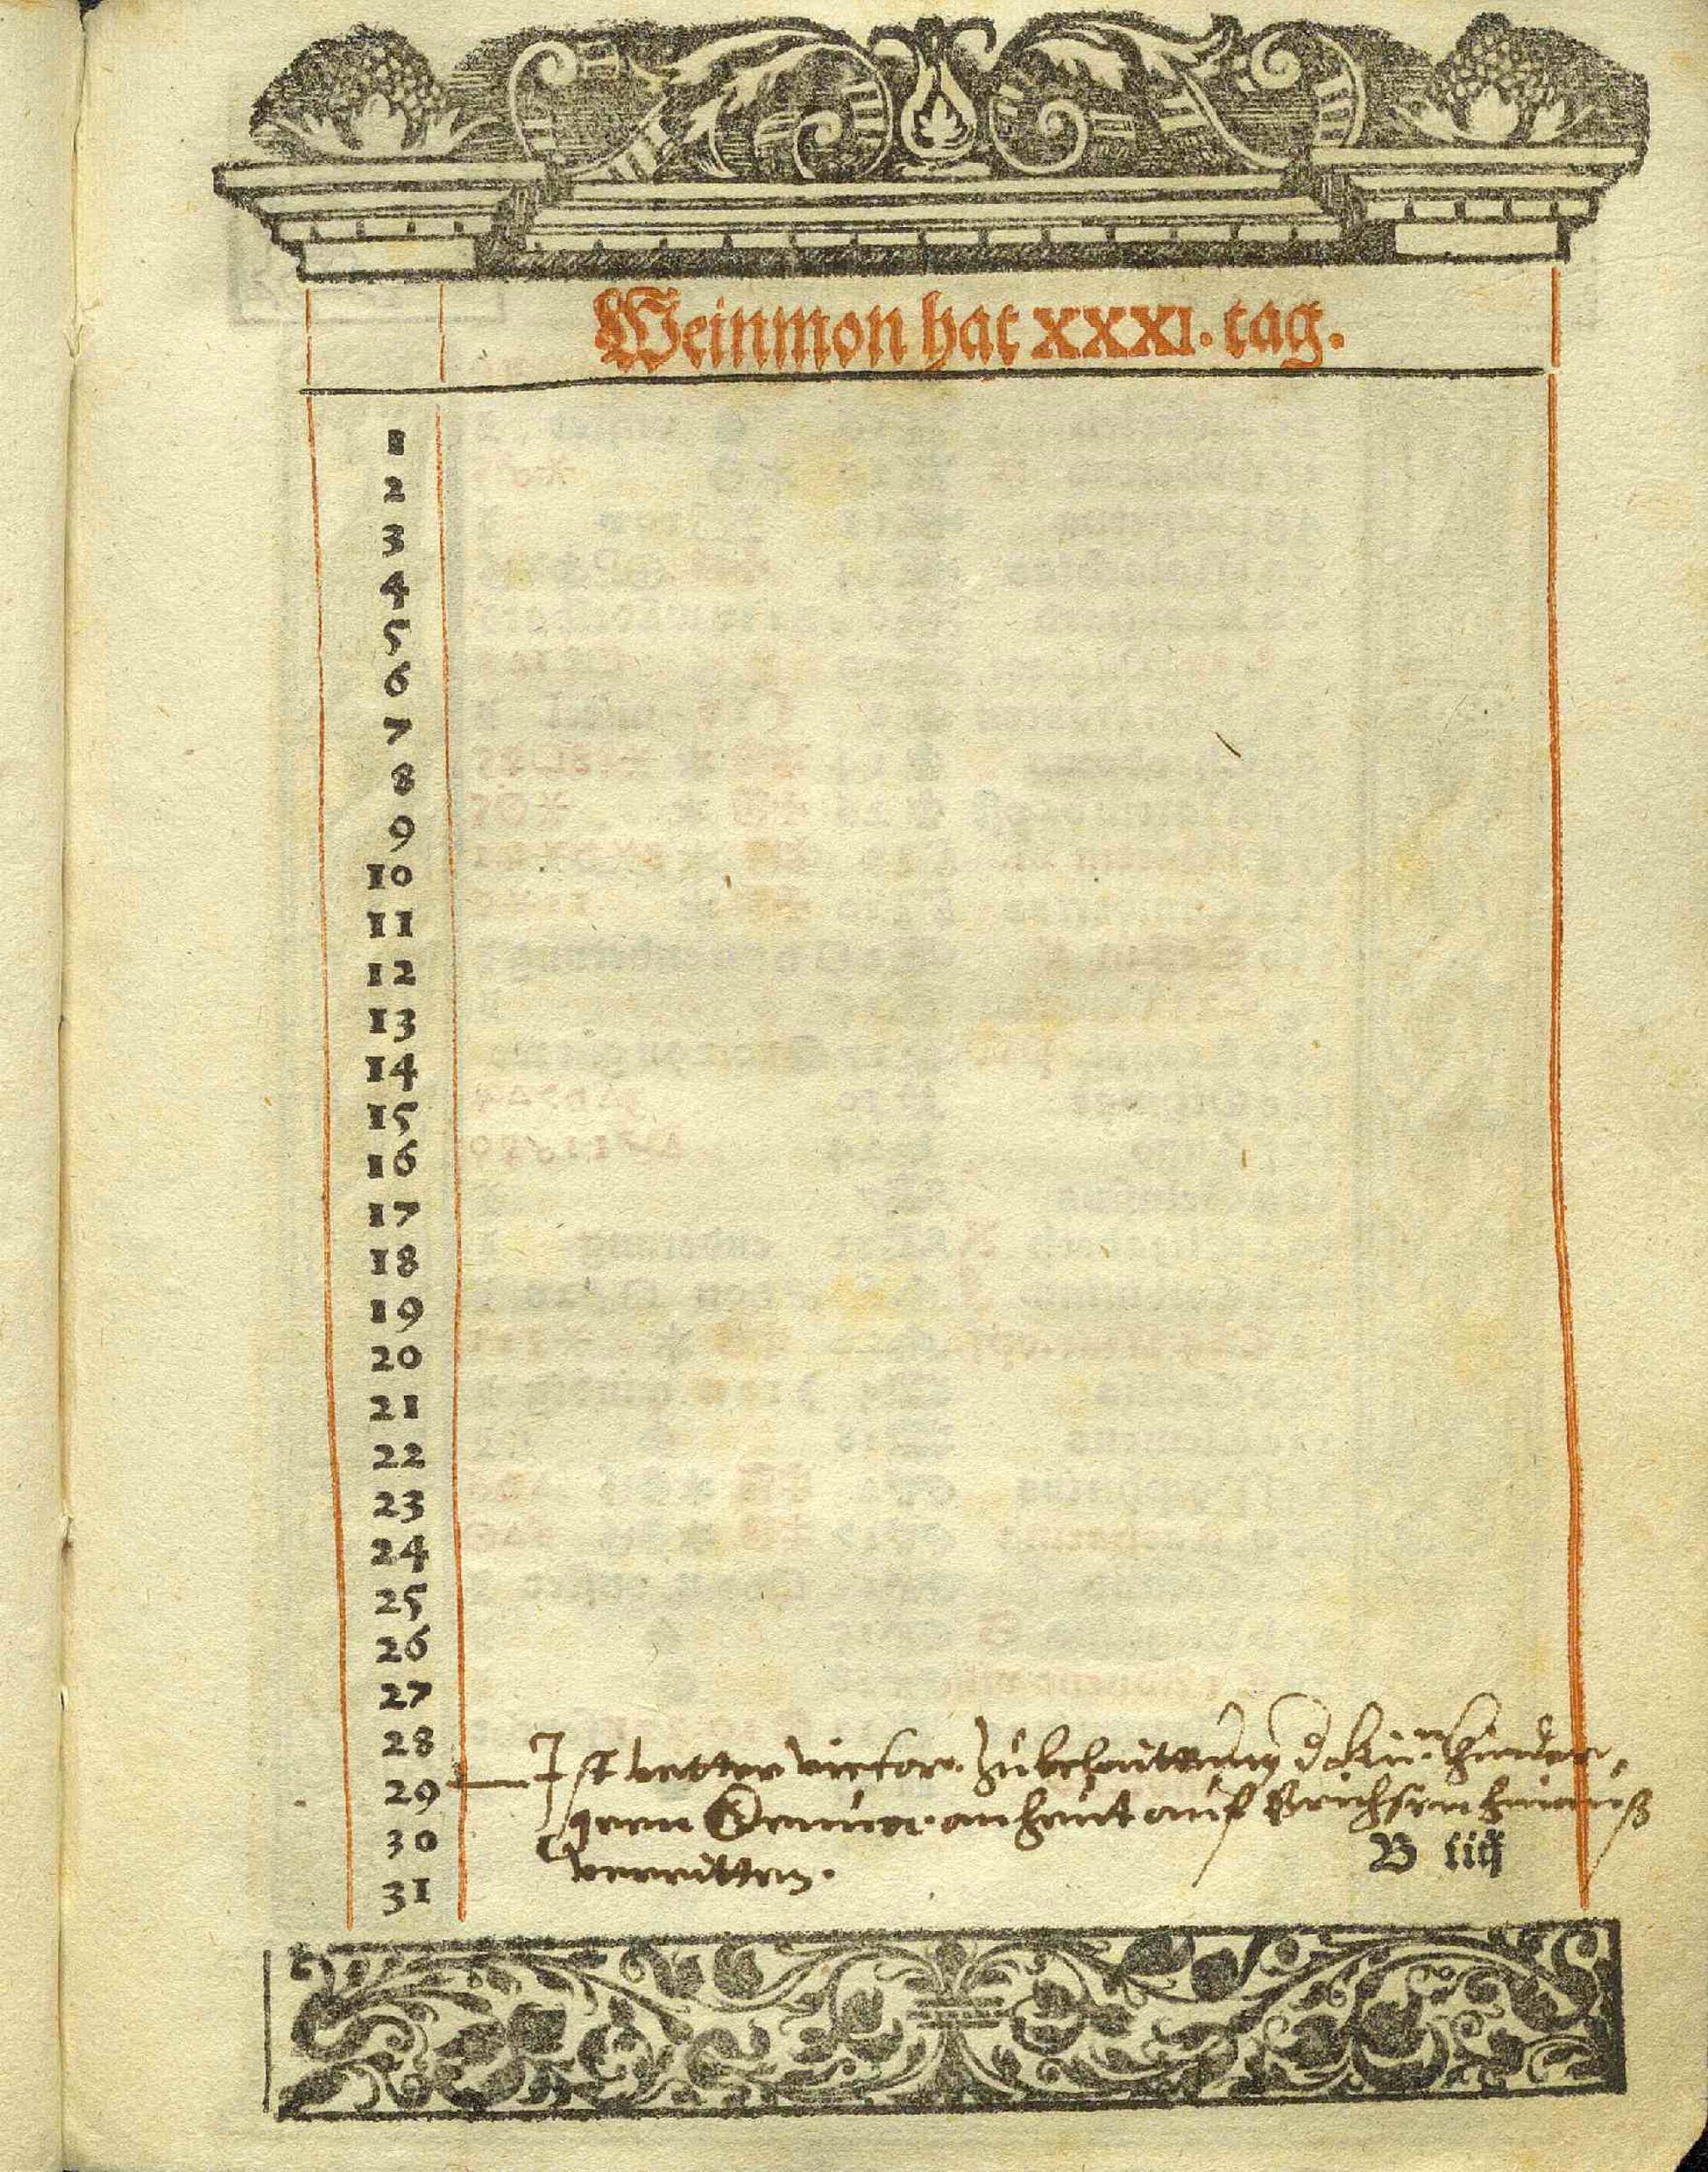 Weinmon hat XXXI. tag.
1
2
3
4
5
6
7
8
9
10
11
12
13
14
15
16
17
18
19
20
21
22
23
24
25
26
27
28
29
30
31
Ist vetter victor. zu
an heut auf
verritten.
B iiij